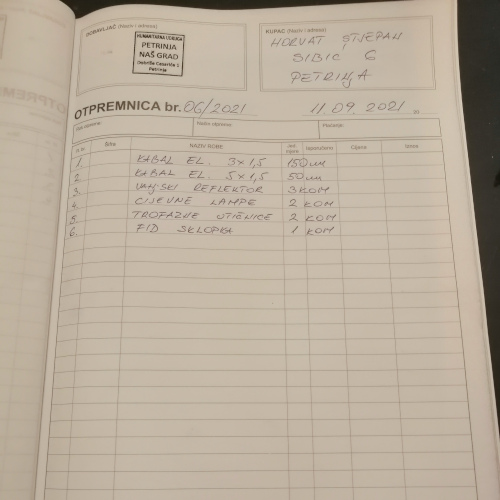 DOBAVLJAČ (Naziv i adresa)
HUMANITARNA UDRUGA
PETRINJA
NAŠ GRAD
Petrinja
KUPAC (Naziv i adresa)
HORVAT STJEPAN
SIBIĆ 6
PETRINJA
OTPREMNICA br. 06/2021
11.09.2021
Način otpreme:
Plaćanje:
R. br.
Šifra
NAZIV ROBE
Jed. mjere
Isporučeno
Cijena
Iznos
1. KABAL EL. 3x1,5 150 m
2. KABAL EL. 5x1,5 50 m
3. VANJSKI REFLEKTOR 3 KOM
4. CIJEVNE LAMPE 2 KOM
5. TROFAZNE UTIČNICE 2 KOM
6. FID SKLOPKA 1 KOM